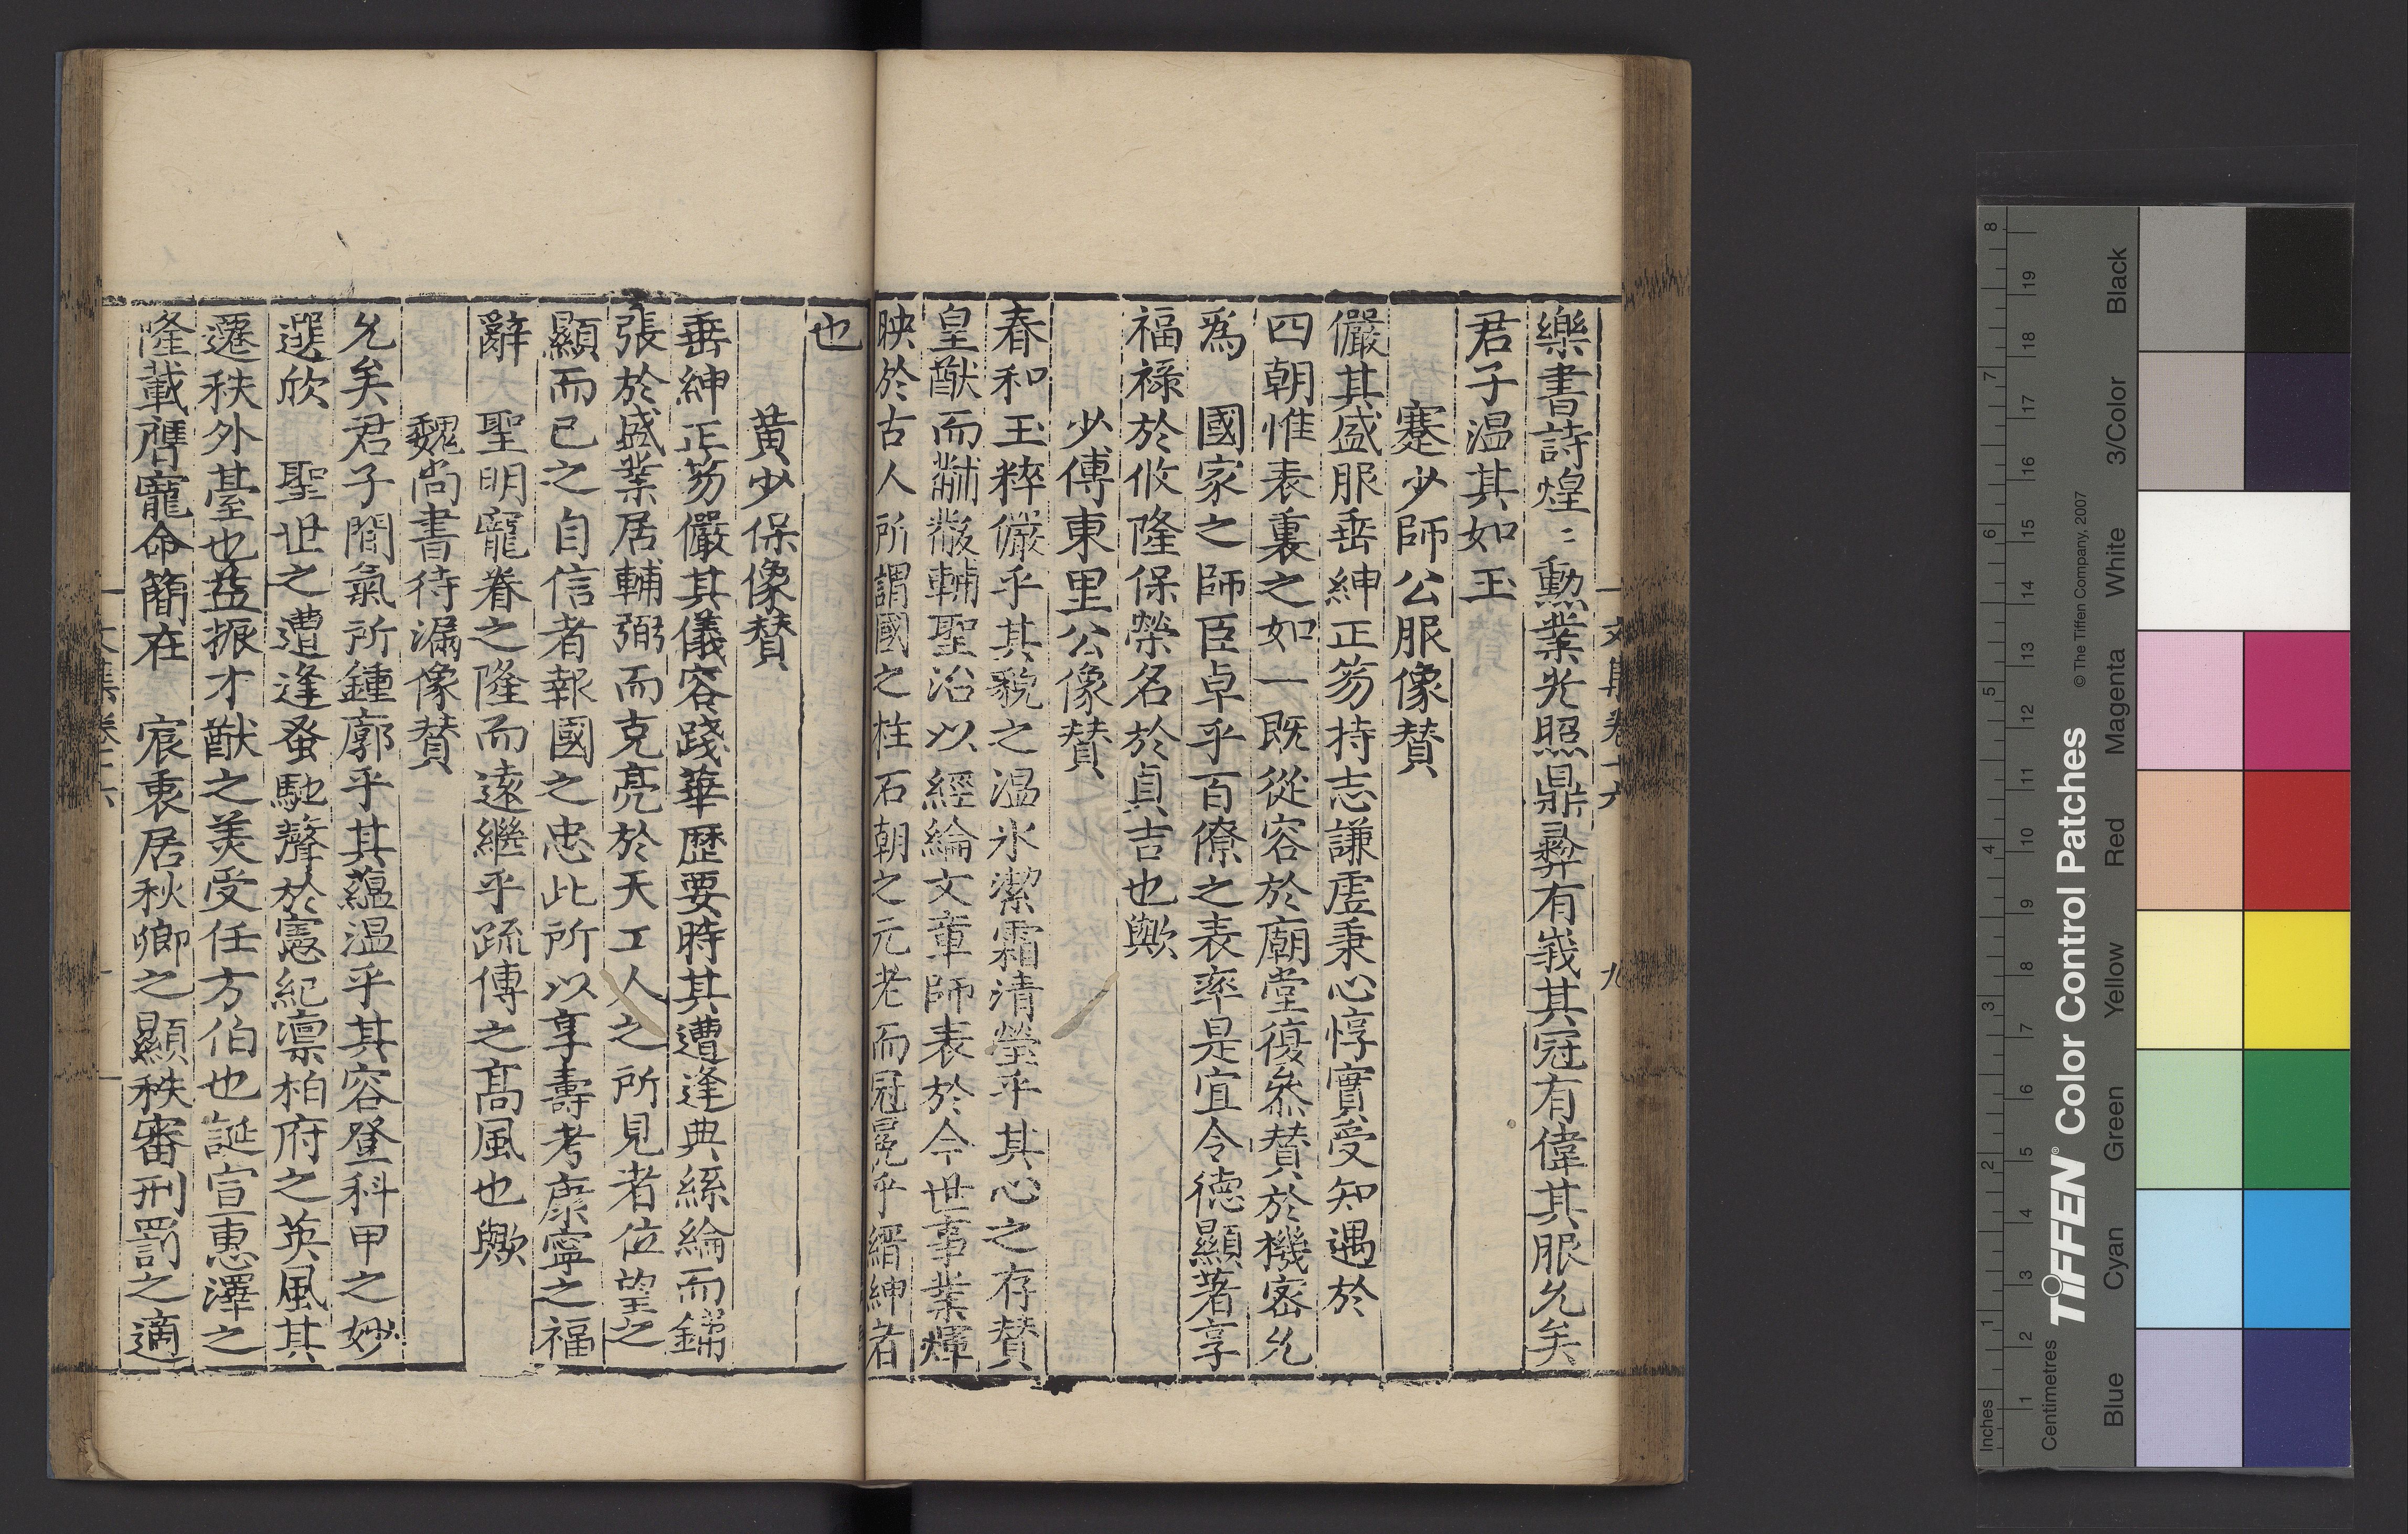 樂書詩煌〻勳業光照鼎彛有峩其冠有偉其服允矣
君子温其如玉
蹇少師公服像贊
儼其盛服垂紳正笏持志謙虚秉心惇實受知遇於
四朝惟表裏之如一既從容於廟堂復叅贊於機密允
爲 國家之師臣卓乎百僚之表率是宜令徳顯著享
福祿於攸隆保榮名於貞吉也歟
少傅東里公像贊
春和玉粹儼乎其貌之温氷潔霜清瑩乎其心之存贊
皇猷而黼黻輔聖治以經綸文章師表於今世事業煇
映於古人所謂國之柱石朝之元老而冠冕乎縉紳者
也
黃少保像贊
垂紳正笏儼其儀容踐華歴要時其遭逢典絲綸而鋪
張於盛業居輔弼而克亮於天工人之所見者位望之
顯而已之自信者報國之忠此所以享壽考康寧之福
辭 聖明寵眷之隆而遠繼乎疏傅之高風也歟
魏尚書待漏像贊
允矣君子間氣所鍾廓乎其藴温乎其容登科甲之妙
選欣 聖世之遭逢蚤馳聲於憲紀凛柏府之英風其
遷秩外臺也益振才猷之美受任方伯也誕宣惠澤之
隆載膺寵命簡在 宸衷居秋卿之顯秩審刑罰之適
文集卷十六 九
文集卷十六
Inches 1 2 3 4 5 6 7 8
Centimetres 1 2 3 4 5 6 7 8 9 10 11 12 13 14 15 16 17 18 19
TIFFEN® Color Control Patches
© The Tiffen Company, 2007
Blue Cyan Green Yellow Red Magenta White 3/Color Black